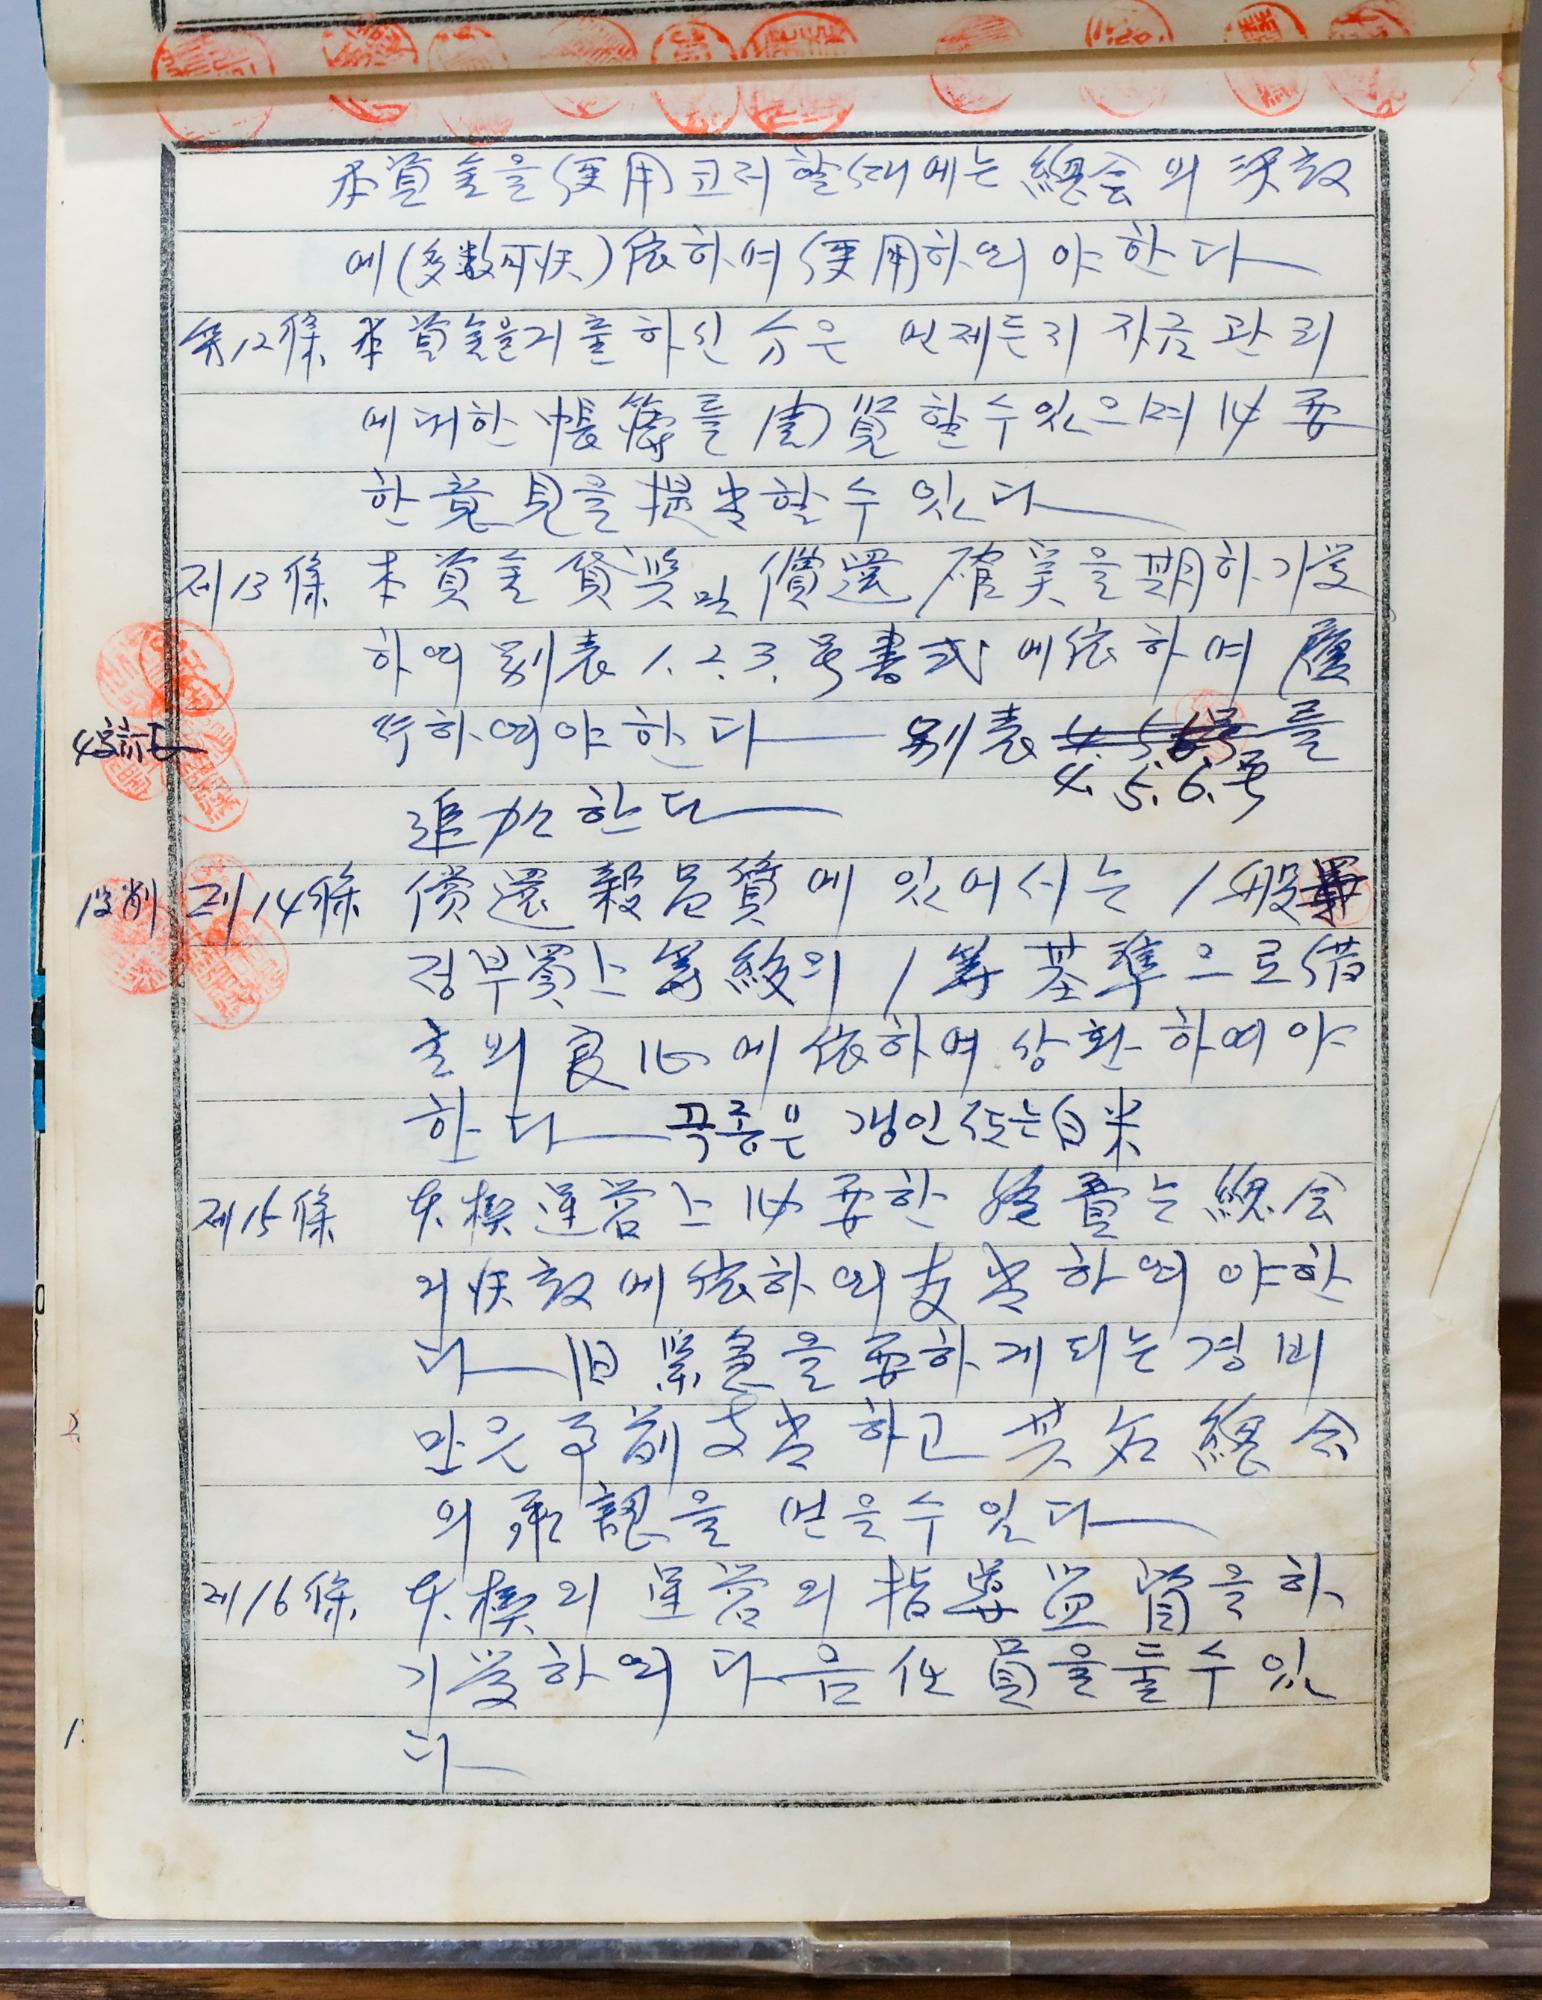 本資金을 使用코저할때에는 總会의 決议
에(多数可决)依하여 使用하여야한다
第12條 本資金을거출하신 分은 언제든지 자금관리
에대한 帳簿를 閲覧할수있으며 必要
한 意見을 提出할수있다
제13條 本資金 貸奨및 償還 確実을 期하기爲
하여 別表 1.2.3.号書式에 依하여 履
行하여야한다 別表 4.5.6号를
4.5.6.号
追加한다
제14條 償還 穀品質에 있어서는 1般
정부買上 等級의 1等 基準으로 借
主의 良心에 依하여 상환하여야
한다 곡종은 갱인 또는 白米
제15條 本楔運営上 必要한 経費는 總会
의决议에 依하여 支出하여야한
다 旧 緊急을 要하게되는 경비
만은 事前支出하고 其后 總会
의 承認을 얻을수있다
제16條 本楔의 運営의 指導監督을하
기爲하여 다음 任員을둘수있
다